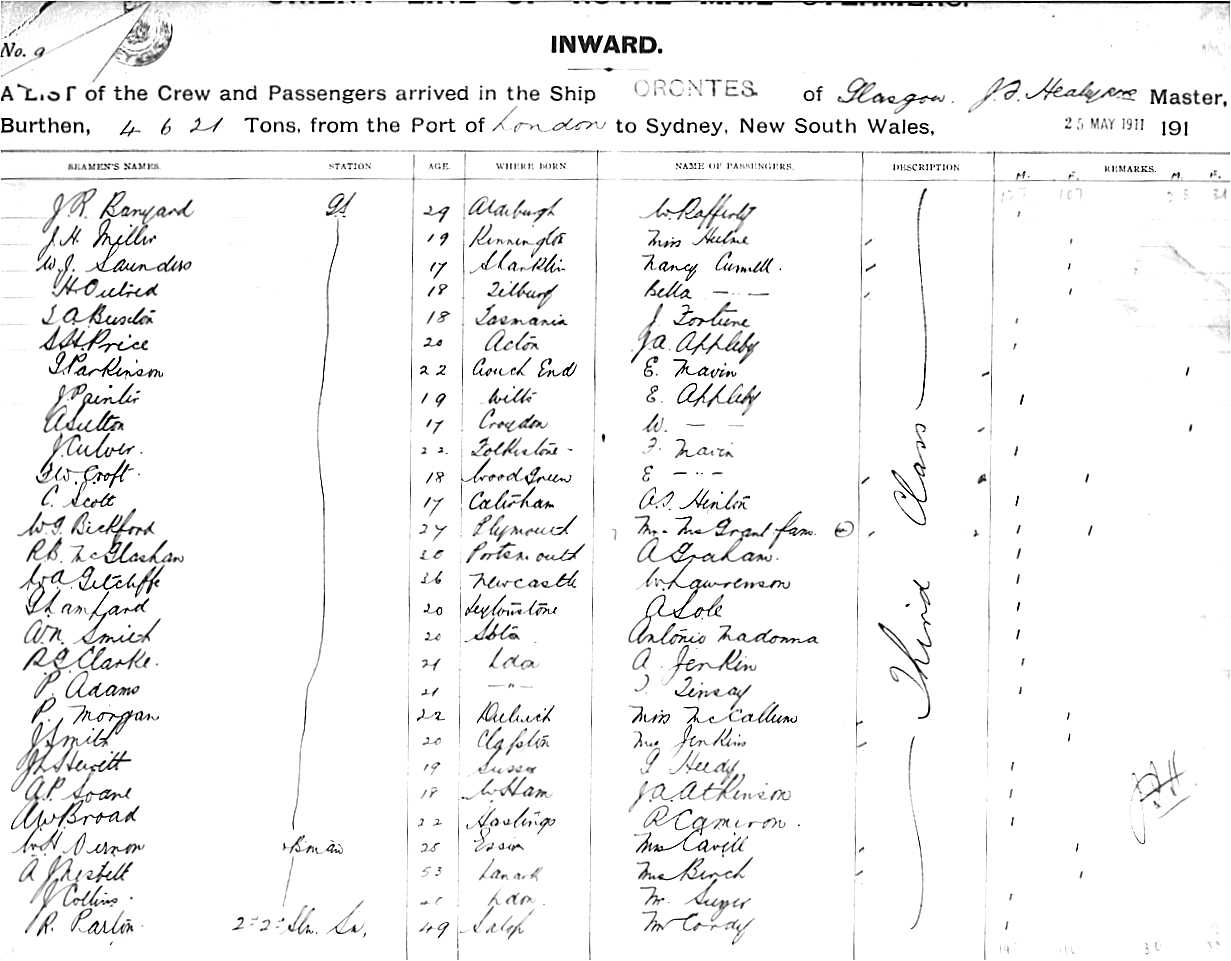 ORIENT LINE OF ROYAL MAIL STEAMERS.
No. 9
INWARD.
A LIST of the Crew and Passengers arrived in the Ship ORONTES. of Glasgow. Master,
Burthen, 4621 Tons, from the Port of London to Sydney, New South Wales, 25 MAY 1911 191
SEAMEN'S NAMES. STATION AGE. WHERE BORN NAME OF PASSENGERS. DESCRIPTION REMARKS.
M. F. M. F.
J. R. Banyard 29 W. Rafferty
J. H. Miller 19 Kennington Miss Hulme
W. J. Saunders 17 Shanklin Nancy
18 Tilbury Bella — " —
18 Tasmania J. Fortune
S H Price 20 Acton J. A. Appleby
Parkinson 22 Crouch End E. Mavin
J. Painter 19 Wilts E. Appleby
A Sutton 17 Croydon W. — —
J. Culver. 22 Folkestone - F. Mavin
F. W. Croft. 18 Wood Green E — " —
C. Scott 17 Caterham Hinton
Bickford 27 Plymouth
R. B. McGlashan 20 Portsmouth A Graham.
26 Newcastle W. Lawrenson
20 Leytonstone A Sole
Smith 20 Antonio Madonna
Clarke. 21 Ldon A. Jenkin
P. Adams 21 — " — Tinsay
P. Morgan 22 Dulwich Miss McCallum
J. Smith 20 Clapton Jenkins
Hewitt 19 Sussex
A. P. Soane 18 W Ham J A Atkinson
A W Broad 22 Hastings R Cameron.
W. H. Vernon 25 Essex Mrs Cavill
A J Nesbett 53 Lanark Mrs Birch
J Collins. 21 Ldon. Mr.
R. Parton. 49 Salop Mr Cordy
Third Class